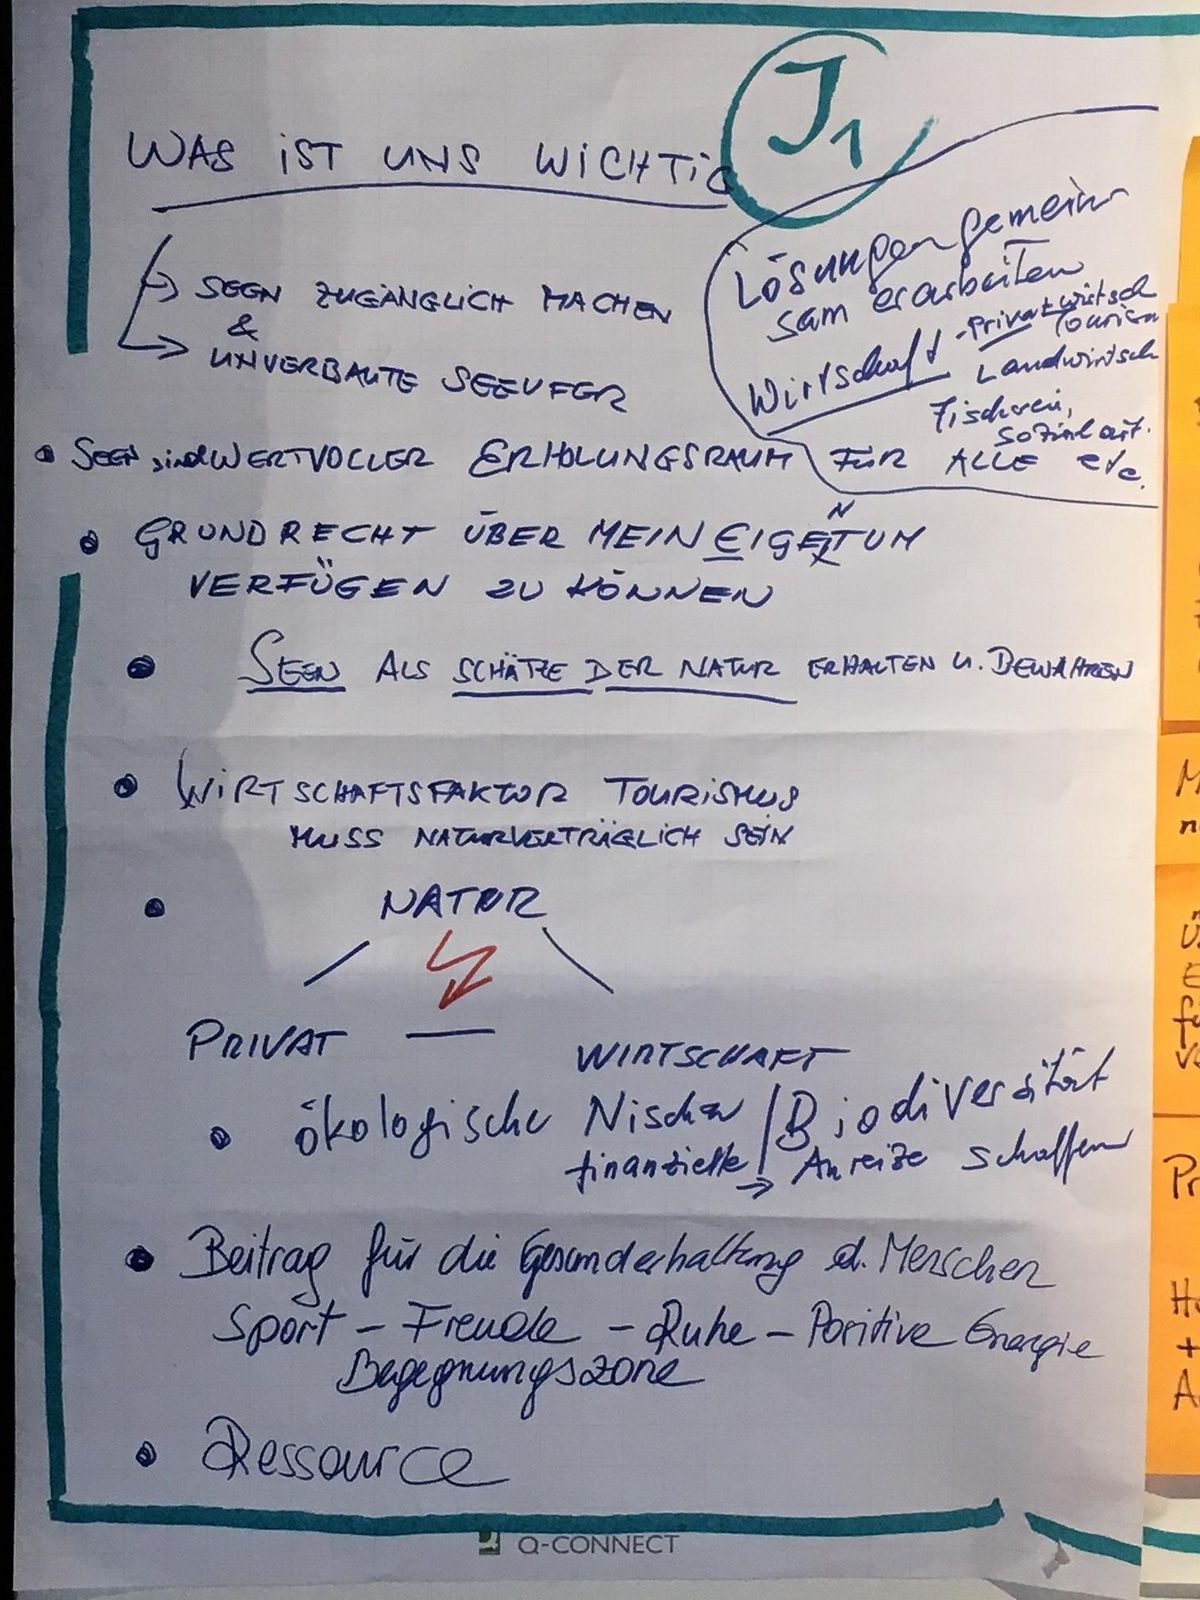 J1
WAS IST UNS WICHTIG
Lösungen gemein
sam erarbeiten
Wirtschaft - Privatwirtsch
Tourism
Landwirtsch
Fischerei,
Sozialart.
etc.
→ SEEN ZUGÄNGLICH MACHEN
&
→ UNVERBAUTE SEEUFER
• SEEN sind WERTVOLLER ERHOLUNGSRAUM FÜR ALLE
• GRUNDRECHT ÜBER MEIN EIGENTUM
VERFÜGEN ZU KÖNNEN
• SEEN ALS SCHÄTZE DER NATUR ERHALTEN U. BEWAHREN
• WIRTSCHAFTSFAKTOR TOURISMUS
MUSS NATURVERTRÄGLICH SEIN
• NATUR
PRIVAT — WIRTSCHAFT
• ökologische Nischen / Biodiversität
finanzielle → Anreize schaffen
• Beitrag für die Gesunderhaltung d. Menschen
Sport – Freude – Ruhe – Positive Energie
Begegnungszone
• Ressource
Q-CONNECT